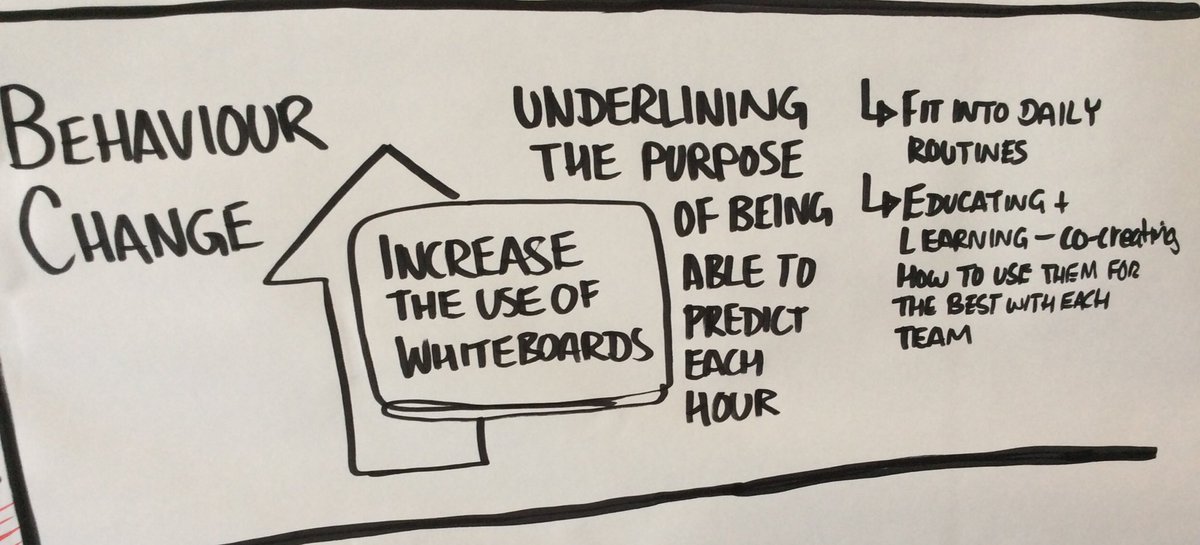 BEHAVIOUR
CHANGE
INCREASE
THE USE OF
WHITEBOARDS
UNDERLINING
THE PURPOSE
OF BEING
ABLE TO
PREDICT
EACH
HOUR
↳ FIT INTO DAILY
ROUTINES
↳ EDUCATING +
LEARNING - co-creating
HOW TO USE THEM FOR
THE BEST WITH EACH
TEAM